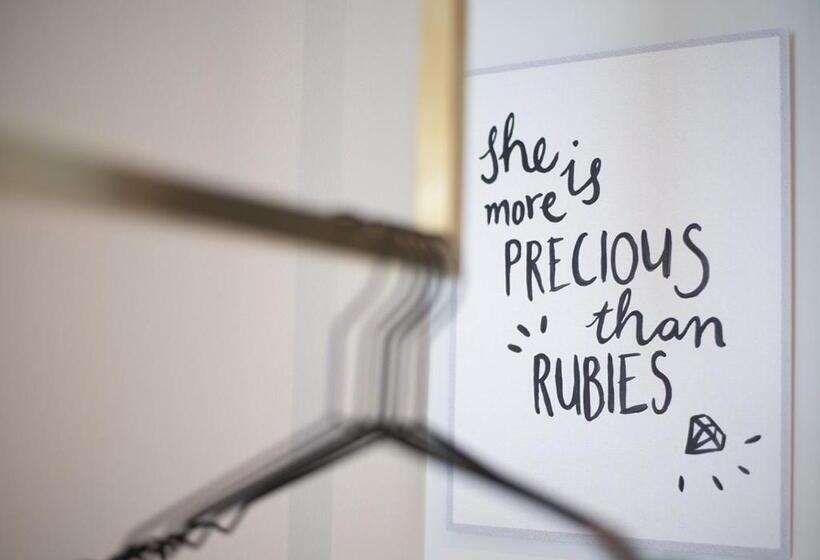 She is
more
PRECIOUS
than
RUBIES